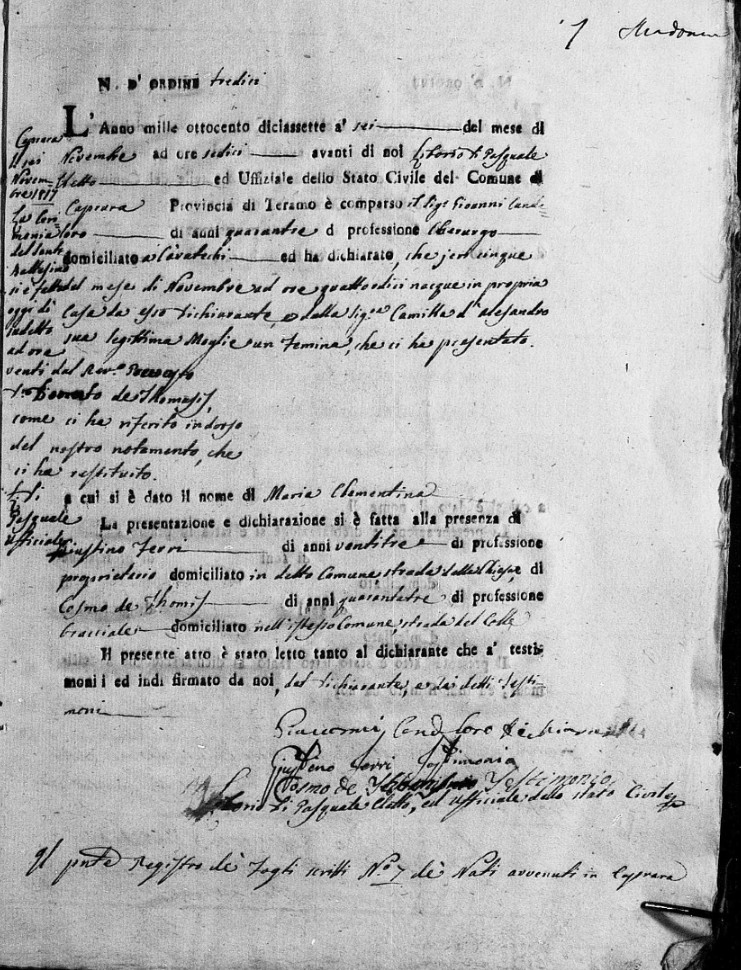 7
N. D' ORDINE tredici
L'Anno mille ottocento diciassette a' sei del mese di
Novembre ad ore sedici avanti di noi Liborio di Pasquale
Eletto ed Uffiziale dello Stato Civile del Comune di
Caprara Provincia di Teramo è comparso il Sigr Giovanni Cande
loro di anni quarantre d professione Chirurgo
domiciliato a ed ha dichiarato, che jeri cinque
del mese di Novembre ad ore quattordici nacque in propria
Casa da esso dichiarante, e dalla Sigra Camilla d'Alesandro
sua legittima Moglie un Femina, che ci ha presentato.
Caprara
li sei
Novem
bre 1817
La Ceri
monia
del Sento
Battesimo
si è fatta
oggi di
sudetto
ad ore
venti dal Rev.
Donato de Thomasis,
come ci ha riferito indorso
del nostro notamento, che
ci ha restituito.
L. di
Pasquale
ufficiale
a cui si è dato il nome di Maria Clementina
La presentazione e dichiarazione si è fatta alla presenza di
Giustino Terri di anni ventitre di professione
proprietario domiciliato in detto Comune strada della Chiesa, di
Cosmo de Thomis di anni quarantatre di professione
bracciale domiciliato nell'istesso Comune, strada del Colle
Il presente atto è stato letto tanto al dichiarante che a' testi-
moni ed indi firmato da noi, dal dichiarante, e dai detti Testi
moni
Candeloro dichiarante
Giustino Terri Testimonio
Cosmo de Testimonio
Liborio di Pasquale Eletto, ed ufficiale dello stato Civile
Il pnte Registro è di fogli scritti No 7 dè Nati avvenuti in Caprara